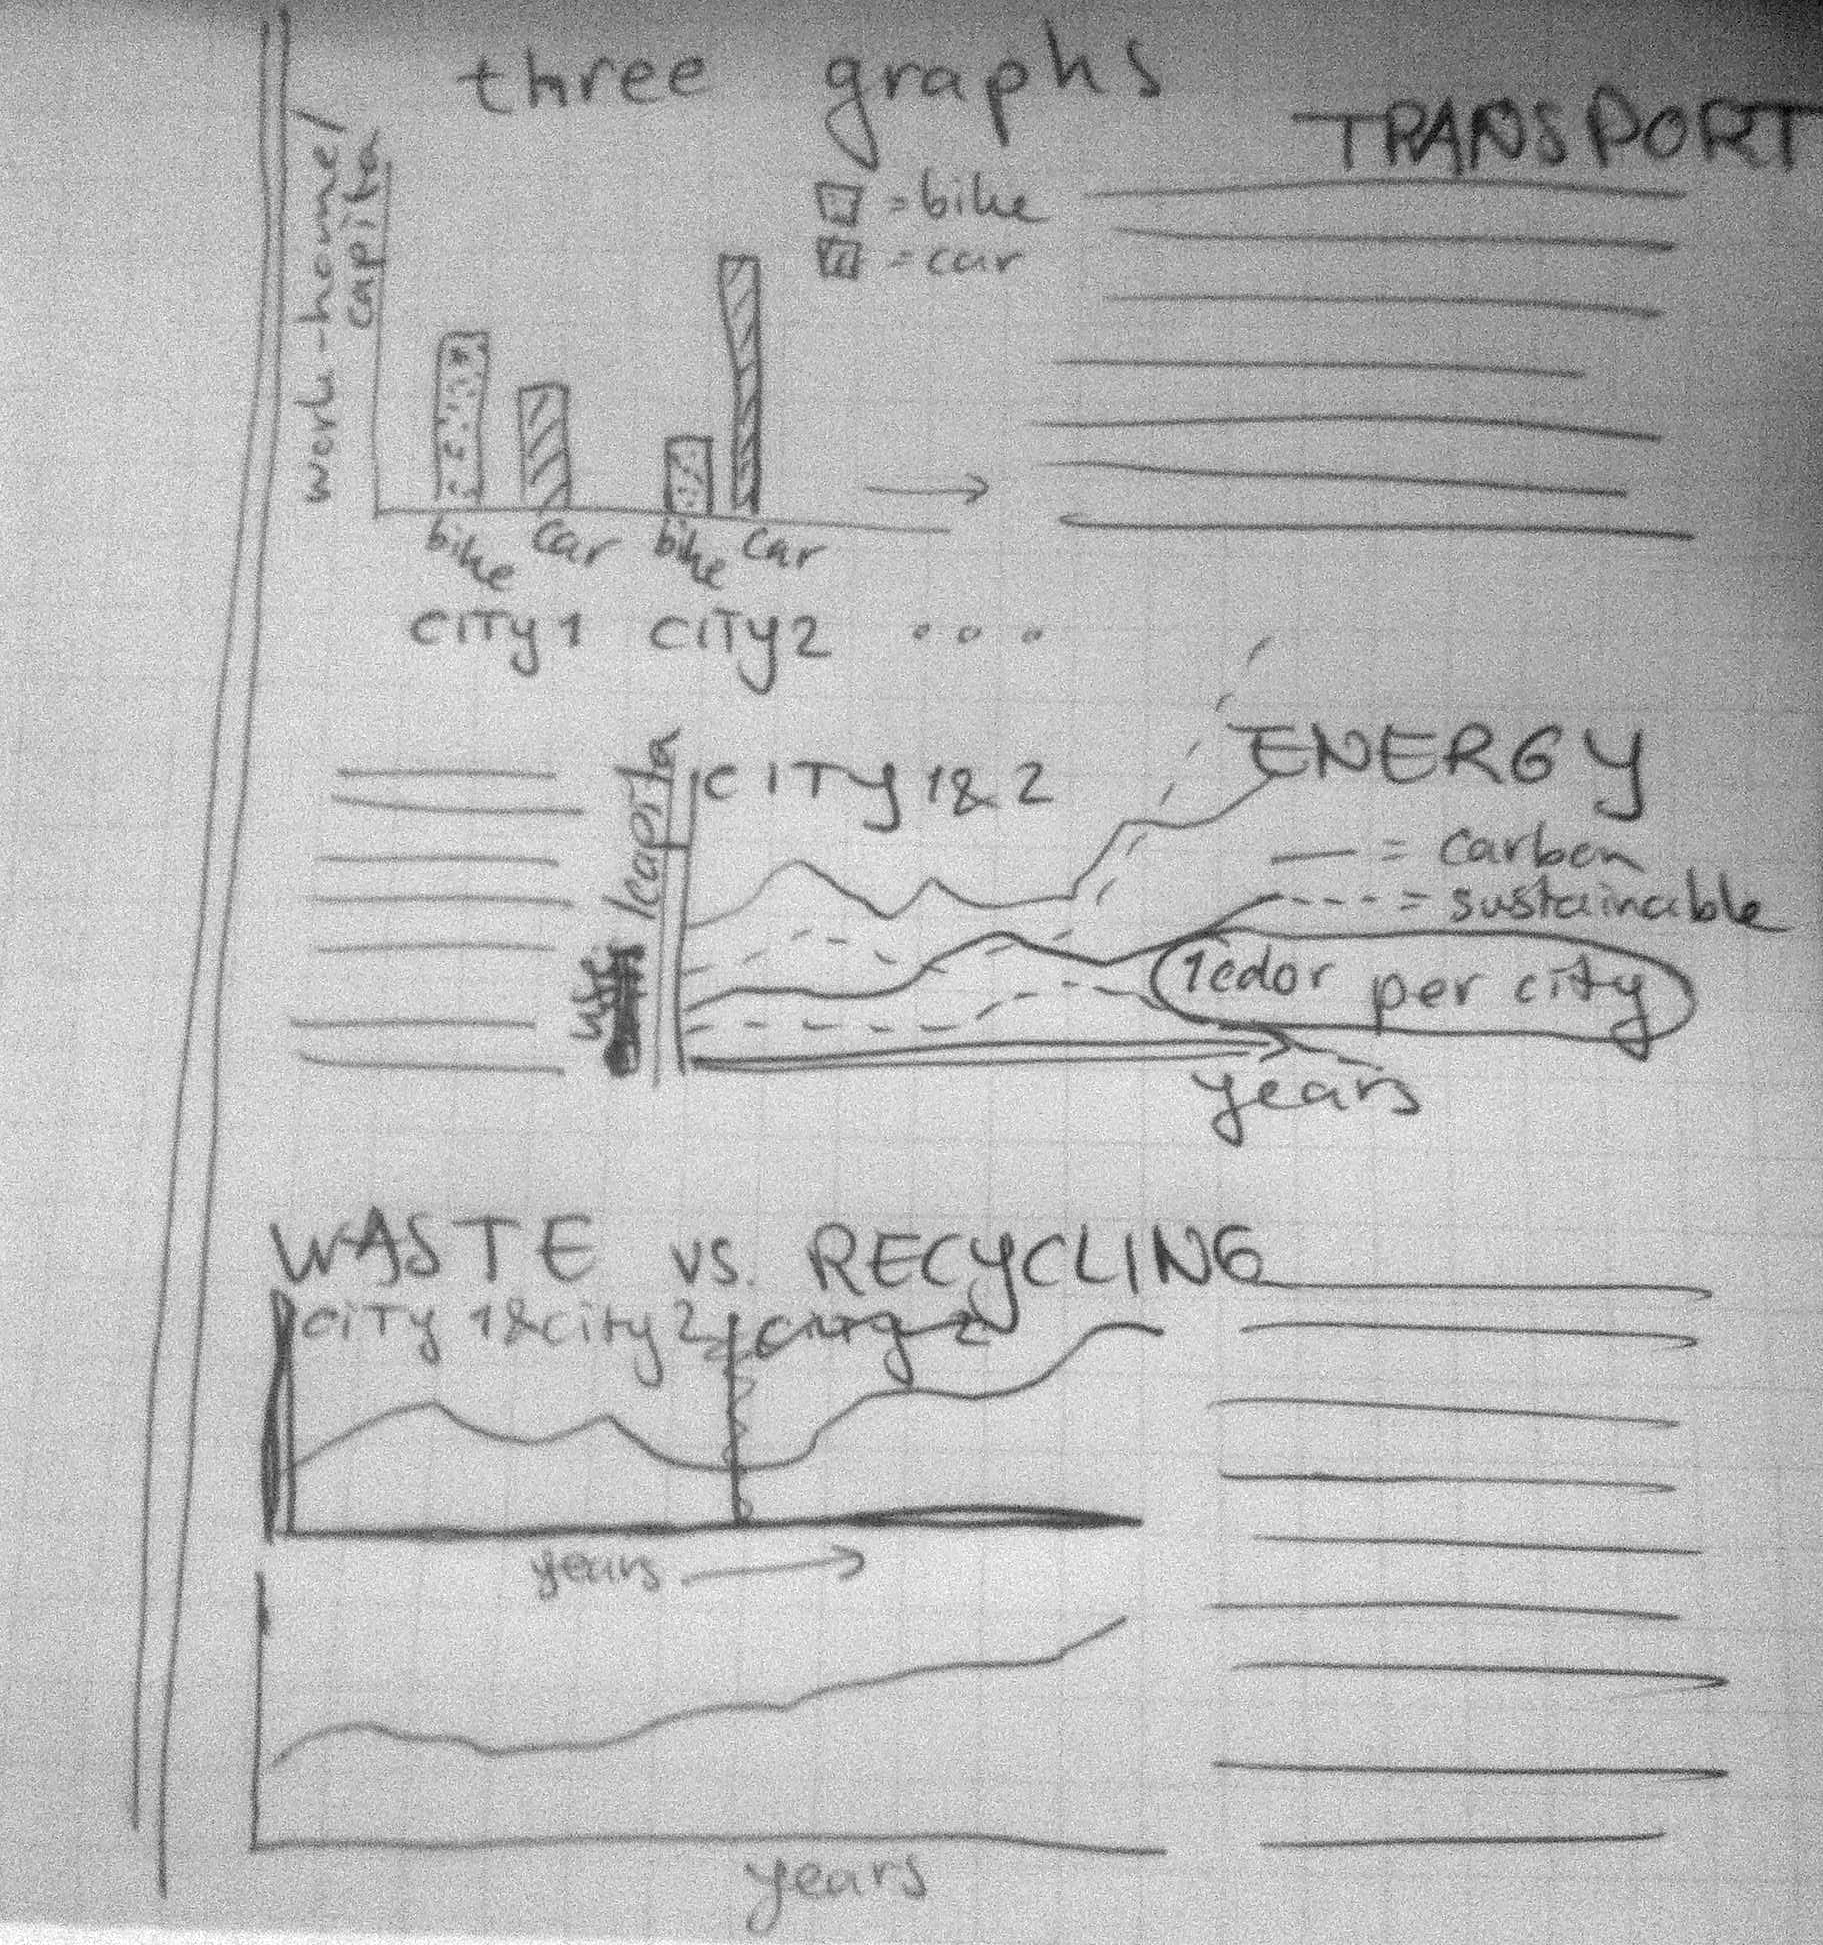 three graphs
TRANSPORT
work-home/
capita
= bike
= car
bike car bike car
CITY 1 CITY 2 ...
ENERGY
CITY 1 & 2
/capita
— = carbon
---- = sustainable
1 color per city
years
WASTE vs. RECYCLING
CITY 1 & city 2
years
years